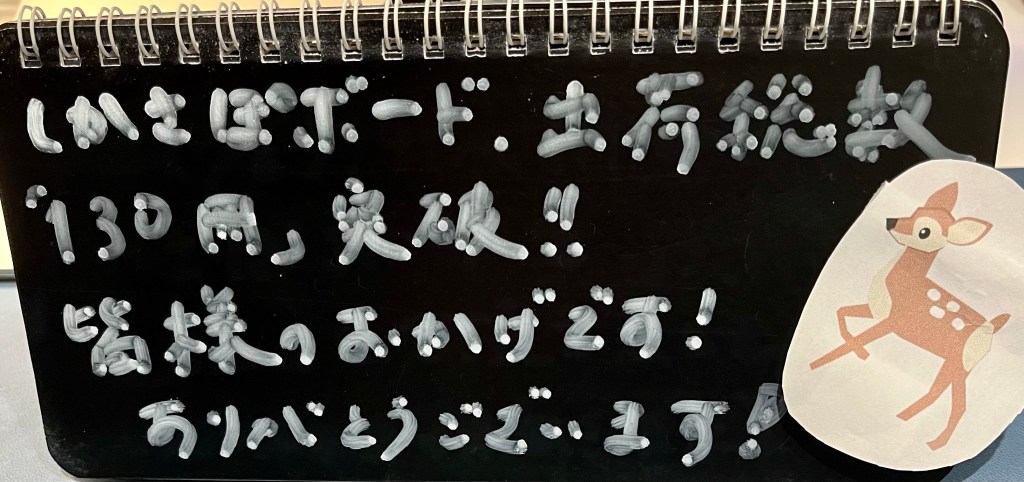 しかさぽボード、出荷総数
130冊、突破!!
皆様のおかげです!
ありがとうございます!